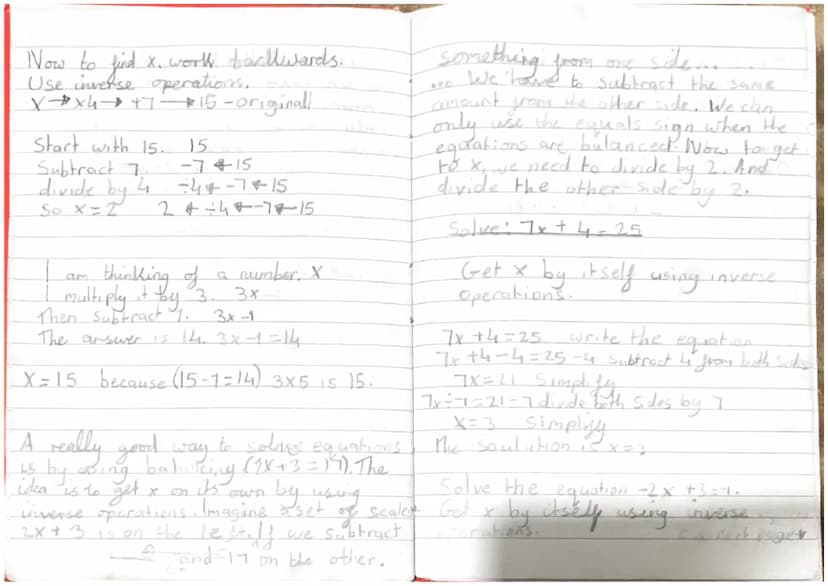 Now to find x, work backwards.
Use inverse operations.
x → x4 → +7 → 15 - originall
Start with 15. 15
Subtract 7. -7 ← 15
divide by 4 ÷4 ← -7 ← 15
So x = 2 2 ← ÷4 ← -7 ← 15
I am thinking of a number. x
I multiply it by 3. 3x
Then subtract 1. 3x-1
The answer is 14. 3x-1=14
x=15 because (15-1=14) 3x5 is 15.
A really good way to solve equations
is by using balancing (2x+3=17). The
idea is to get x on its own by using
inverse operations. Imagine a set of scales
2x+3 is on the left. If we subtract
and 17 on the other.
something from one side...
... We have to subtract the same
amount from the other side. We can
only use the equals sign when the
equations are balanced. Now to get
to x, we need to divide by 2. And
divide the other side by 2.
Solve: 7x + 4 = 25
Get x by itself using inverse
operations.
7x+4=25 write the equation
7x+4-4=25-4 Subtract 4 from both sides
7x=21 Simplify
7x÷7=21÷7 divide both sides by 7
x=3 Simplify
The soulution is x=3
Solve the equation -2x +3=
Get x by itself using inverse
operations. next page